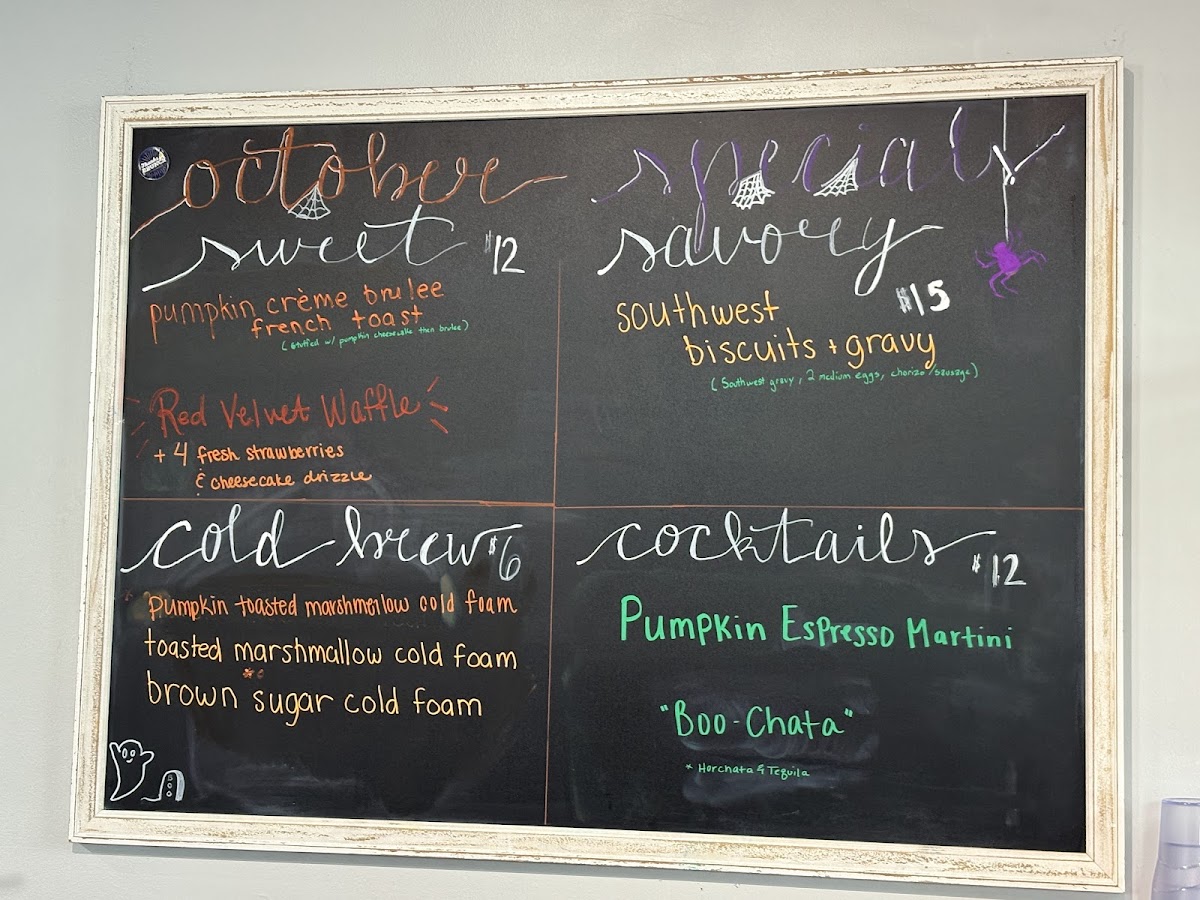 october specials
sweet $12
pumpkin crème brulee
french toast
(stuffed w/ pumpkin cheesecake then brulee)
Red Velvet Waffle
+ 4 fresh strawberries
& cheesecake drizzle
savory $15
southwest
biscuits + gravy
(Southwest gravy, 2 medium eggs, chorizo/sausage)
cold brew $6
pumpkin toasted marshmellow cold foam
toasted marshmallow cold foam
brown sugar cold foam
cocktails $12
Pumpkin Espresso Martini
"Boo-Chata"
* Horchata & Tequila